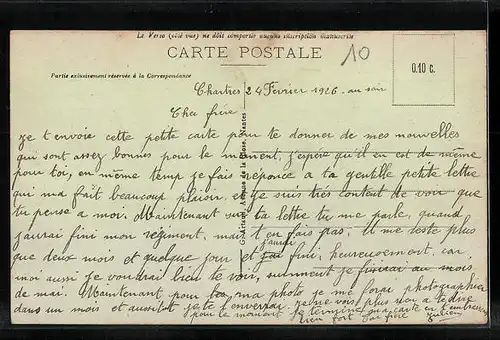 Le Verso (côté vue) ne doit comporter aucune inscription manuscrite
CARTE POSTALE
10
0.10 c.
Partie exclusivement réservée à la Correspondance
Chartres 24 Février 1926 au soir
Cher frère
Je t'envoie cette petite carte pour te donner de mes nouvelles
qui sont assez bonnes pour le moment, j'espère qu'il en est de même
pour toi, en même temp je fais reponce a ta gentille petite lettre
qui ma fait beaucoup plaisir, et je suis très content de voir que
tu pense a moi. Maintenant sur ta lettre tu me parle, quand
j'aurai fini mon régiment, mais t'en fais pas, il me reste plus
que deux mois et quelque jour et j'aurai fini, heureusement, car
moi aussi je voudrai bien te voir, surment je finirai au mois
de mai. Maintenant pour ma photo je me ferai photographier
dans un mois et aussitot je te l'enverrai. Je ne vois plus rien a te dire
pour le moment je termine ma carte en t'embrassant
bien fort ton frère Julien
Nantes